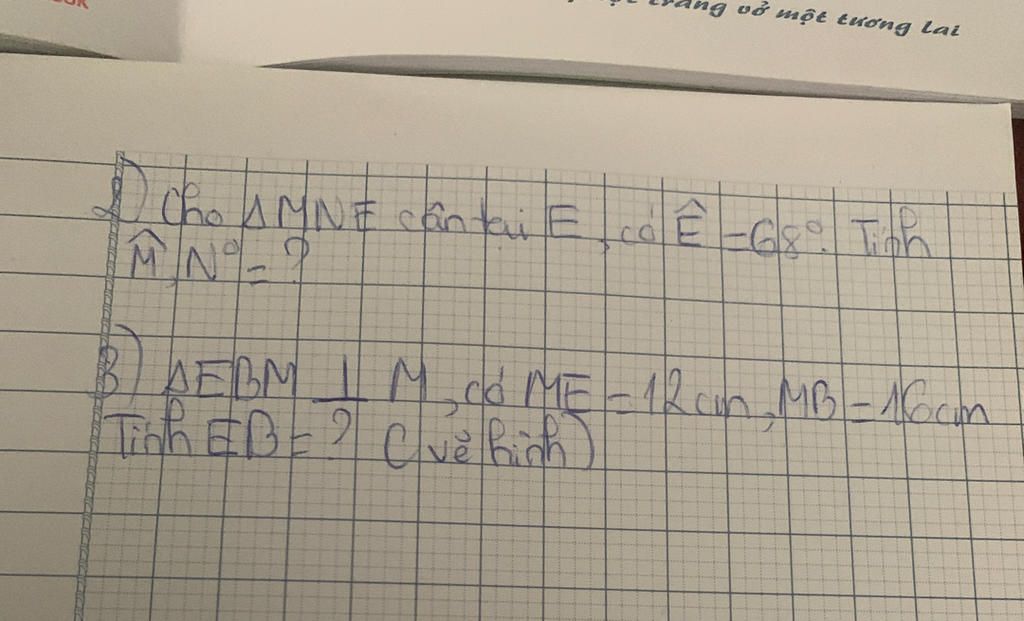 vở một tương lai
2) Cho ΔMNE cân tại E, có Ê = 68°. Tính
M̂, N° = ?
3) ΔEBM ⊥ M, có ME = 12cm, MB = 16cm
Tính EB = ? (vẽ hình)